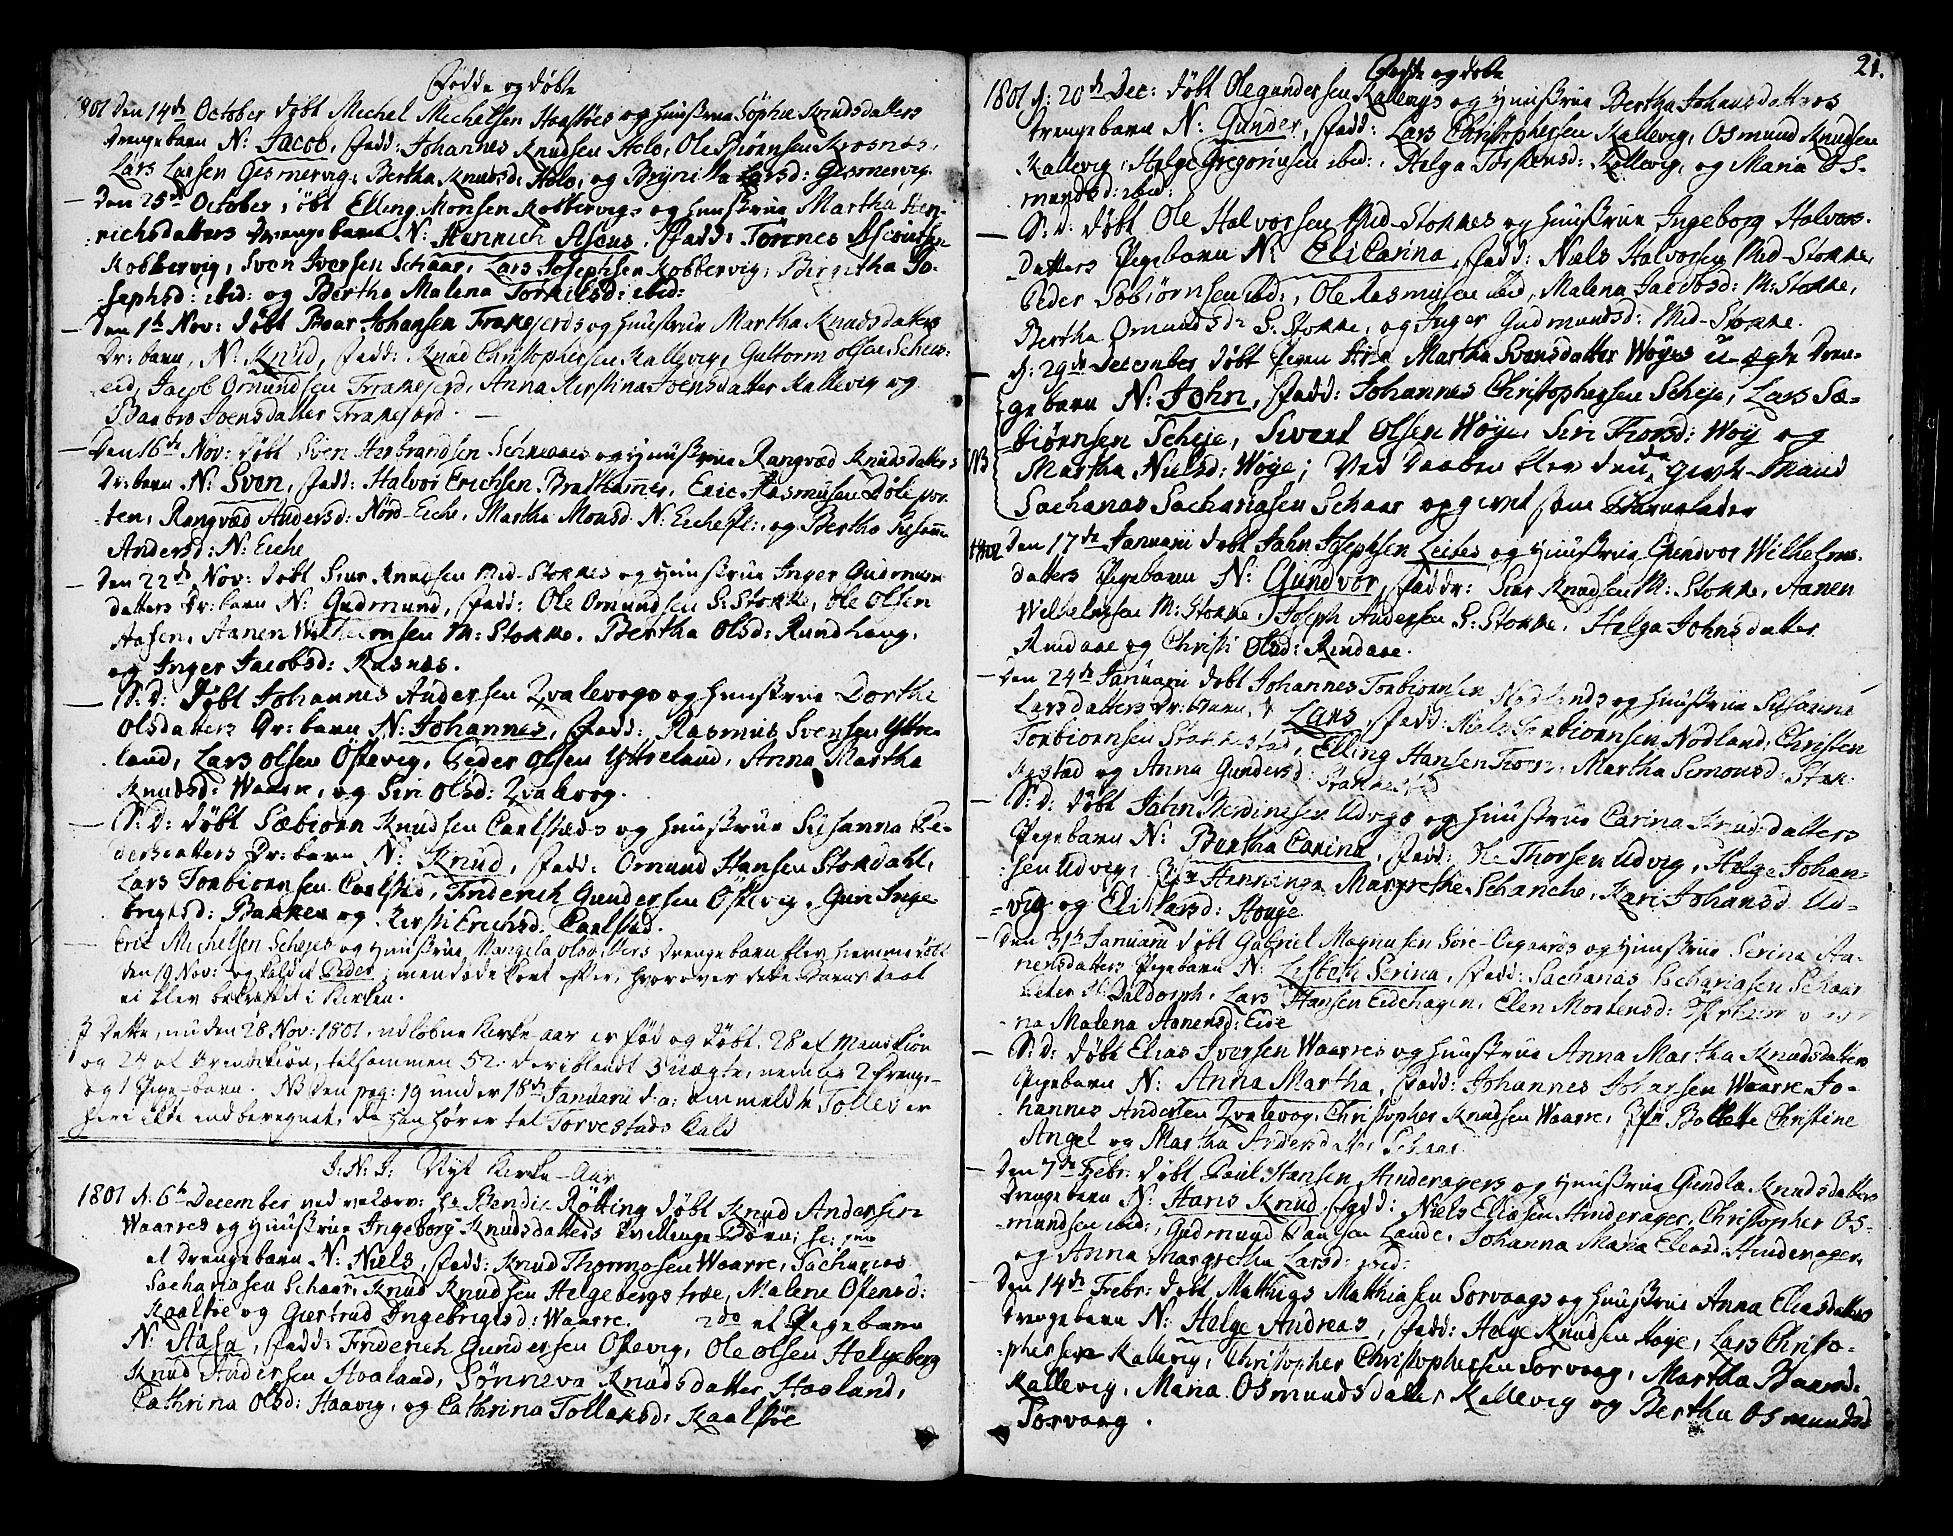 Fødde og døbte
1801 den 14de October døbt Michel Michelsen og Huustrue Sophie Knudsdatters
Drengebarn N: Jacob, Fadd: Johannes Knudsen Holo, Ole Biørnsen Krosnes,
Lars Larsen Gesmervig, Bertha Knudsd: Holo, og Larsd: Gesmervig.
— Den 25de October, døbt Elling Monsen Kobbervigs og Huustrue Martha Hen-
richsdatters Drengebarn N: Henrich Asens, Fadd: Tønnes
Kobbervig, Sven Iversen Schaar, Lars Josephsen Kobbervig, Birgitha Jo-
sephsd: ibid: og Bertha Malena Torkilsd: ibid:
— Den 1te Nov: døbt Baar Johansen Frakefjords og Huustrue Martha Knudsdatters
Dr: barn, N: Knud, Fadd: Knud Christophersen Kallevig, Guttorm Olsen
eid, Jacob Omundsen Frakefjord, Anna Kirstina Joensdatter Kallevig og
Barbro Joensdatter Frakefjord. —
— Den 16de Nov: døbt Sven Herbrandsen og Huustrue Rangvæd Knudsdatters
Dr: barn N: Sven, Fadd: Halvor Erichsen Bratthammer, Eric Rasmusen
ten, Rangvæd Andersd: Nord-Eiche, Martha Monsd. N: Eiche og Bertha
Andersd: N: Eiche
— Den 22de Nov: døbt Siur Knudsen Mid-Stokkes og Huustrue Inger Gudmun-
datters Dr: barn N: Gudmund, Fadd: Ole Omundsen S: Stokke, Ole Olsen
Aasen, Aanen Wilhelmsen M: Stokke, Bertha Olsd: Rundhaug,
og Inger Jacobsd: Røsnes.
— S: D: Døbt Johannes Andersen Qvalevogs og Huustrue Dorthe
Olsdatters Dr: barn N: Johannes, Fadd: Rasmus Svensen Yttre-
land, Lars Olsen Østevig, Peder Olsen Yttreland, Anna Martha
Knudsd: Waarre, og Siri Olsd: Qvalevog.
— S: D: døbt Sæbiørn Knudsen Carlstads og Huustrue Susanna Pe-
dersdatters Dr: barn N: Knud, Fadd: Omund Hansen Stokdahl,
Lars Torbiørnsen Carlstad, Friderich Gundersen Østevig, Guri Inge-
brigtsd: Bakken og Kirsti Erichsd. Carlstad.
— Eric Michelsen Schejes og Huustrue Mangela Olsdatters Drengebarn blev hiemmedøbt
den 19 Nov: og kaldet Peder, men døde kort efter, hvorover dette Barns daab
ei blev bekræftet i Kirken.
I Dette, nu den 28 Nov: 1801, udløbne Kirke-aar er fød og døbt 28 af Mandkiøn
og 24 af Qvindekiøn, tilsammen 52. deriblandt 3 uægte, nemlig 2 Drenge-
og 1 Pige-barn. NB Den pag: 19 under 18de Januarii d: a: anmeldte Tolles er
heri ikke indberegnet, da han hører til Torvestads Kald
I. N. J. Nyt Kirke-Aar
1801 d: 6te December, ved velærv: Hr Bendix Rølting døbt Knud Andersen
Waarres og Huustrue Ingeborg Knudsdatters Tvillinge Børn; sc:
et Drengebarn N: Niels, Fadd: Knud Thormosen Waarre, Sacharias
Sachariasen Schaar, Knud Knudsen Helgebergstræe, Malene Østensd:
Kaalsøe og Giertrud Ingebrigtsd: Waarre. 2do et Pigebarn
N: Aasa, Fadd: Friderich Gundersen Østevig, Ole Olsen Helgeberg
Knud Andersen Hoaland, Sønneva Knudsdatter Haaland,
Cathrina Olsd: Haavig, og Cathrina Tollaksd: Kaalsøe
21.
Fødde og døbte
1801 d: 20de Dec: døbt Ole Gundersen Kallevigs og Huustrue Bertha Johansdatters
Drengebarn N: Gunder, Fadd: Lars Christophersen Kallevig, Osmund Knudsen
Kallevig, Helge Gregoriusen ibid:, Helga Torstensd: Kallevig, og Maria Os-
mundsd: ibid:
— S: D: døbt Ole Halvorsen Mid-Stokkes og Huustrue Ingeborg Halvors-
datters Pigebarn N: Eli Carina, Fadd: Niels Halvorsen Mid-Stokke,
Peder Sæbiørnsen ibid:, Ole Rasmusen ibid, Malena Jacobsd: M: Stokke,
Bertha Omundsd: S: Stokke, og Inger Gudmundsd: Mid-Stokke.
— d: 29de December døbt Pigen Martha Svensdatter Wøyes u-ægte Dren-
gebarn N: John, Fadd: Johannes Christophersen Scheje, Lars Sæ-
biørnsen Scheje, Sivert Olsen Wøye, Siri Thorsd: Wøy og
NB Martha Nielsd: Wøye; Ved Daaben blev den givte Mand
Sacharias Sachariasen Schaar opgivet som Barnefader
1802 Den 17de Januarii døbt John Josephsen Leites og Huustrue Gundvor Wilhelms-
datters Pigebarn N: Gundvor, Faddr: Siur Knudsen M: Stokke, Aanen
Wilhelmsen M: Stokke, Joseph Andersen S: Stokke, Helga Johnsdatter
Rendaae og Christi Olsd: Rendaae.
— Den 24de Januarii døbt Johannes Torbiørnsen Nodlands og Huustrue Susanne
Larsdatters Dr: barn, N Lars, Fadd: Niels Torbiørnsen Nodland, Christen
Torbiørnsen Stakkestad, Elling Hansen, Martha Simonsd: Stak-
kestad og Anna Gundersd: Stakkestad
— S: D: døbt John Udvigs og Huustrue Carina Knudsdatters
Pigebarn N: Bertha Carina, Fadd: Ole Thorsen Udvig, Helge Johan-
sen Udvig, Jfr Henninga Margrethe Schanche, Kari Johansd Ud-
vig og Eli Larsd: Houge
— Den 31te Januarii døbt Gabriel Magnusen og Huustrue Serina Aa-
nensdatters Pigebarn N: Lisbeth Serina, Fadd: Sacharias Sachariasen Schaar
Peter Waldorph, Lars Hansen Eidehagen, Elen Mortensd:
na Malena Aanensd: Eide
— S: D: døbt Elias Iversen Waarres og Huustrue Anna Martha Knudsdatters
Pigebarn N: Anna Martha, Fadd: Johannes Johansen Waarre Jo-
hannes Andersen Qvalevog, Christopher Knudsen Waarre, Jfr Bollette Christine
Angel og Martha Andersdatter Schaar.
— Den 7de Febr: døbt Paul Hansen Hinderagers og Huustrue Gundla Knudsdatters
Drengebarn N: Hans Knud, Fadd: Niels Eliasen Hinderager, Christopher Os-
mundsen ibid:, Gudmund Paulsen Lande, Johanna Maria Eliasd: Hinderager,
og Anna Margretha Larsd: ibid:
— Den 14de Febr: døbt Mathias Mathiasen Sørvaags og Huustrue Anna Eliasdatters
Drengebarn N: Helge Andreas, Fadd: Helge Knudsen Høje, Lars Christo-
phersen Kallevig, Christopher Christophersen Sørvaag, Martha Baarsd:
Kallevig, Maria Osmundsdatter Kallevig og Bertha Osmundsd
Sørvaag.